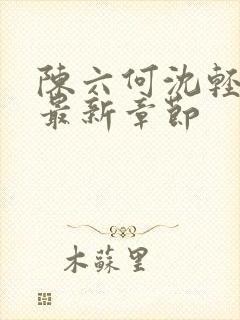 陳六何沈輕
最新章節
木蘇里